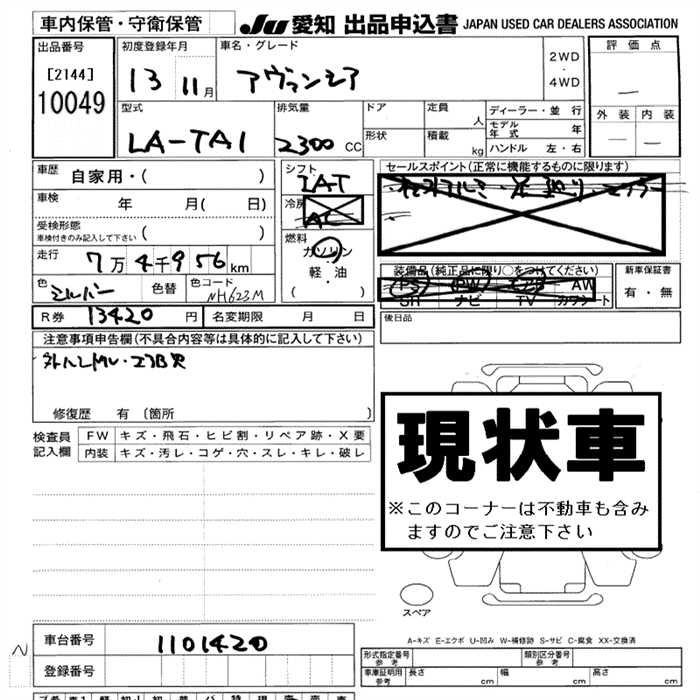 車内保管・守衛保管
JU 愛知 出品申込書 JAPAN USED CAR DEALERS ASSOCIATION
出品番号 初度登録年月 車名・グレード 評価点
[2144]
10049 13 11月 アヴァンシア 2WD・4WD
型式 排気量 ドア 定員 人 ディーラー・並行 外装 内装
LA-TA1 2300 CC 形状 積載 kg モデル年式 年
ハンドル 左・右
車歴 自家用・( ) シフト IAT セールスポイント(正常に機能するものに限ります)
車検 年 月( 日) 冷房 AC
受検形態
車検付きのみ記入して下さい ( ) 燃料 ガソリン
走行 7万4千956km 軽・油
( )
装備品(純正品に限り○をつけてください) 新車保証書
PS PW エアB AW 有・無
SR ナビ TV カワシート
色 シルバー 色替 色コード NH623M
後日品
R券 13420 円 名変期限 月 日
注意事項申告欄(不具合内容等は具体的に記入して下さい)
修復歴 有 〔箇所 〕
現状車
※このコーナーは不動車も含み
ますのでご注意下さい
検査員記入欄 FW キズ・飛石・ヒビ割・リペア跡・X要
内装 キズ・汚レ・コゲ・穴・スレ・キレ・破レ
スペア
A-キズ E-エクボ U-凹み W-補修跡 S-サビ C-腐食 XX-交換済
車台番号 1101420
登録番号
形式指定番号 参考 類別区分番号 参考
車庫証明用 参考 長さ cm 幅 cm 高さ cm